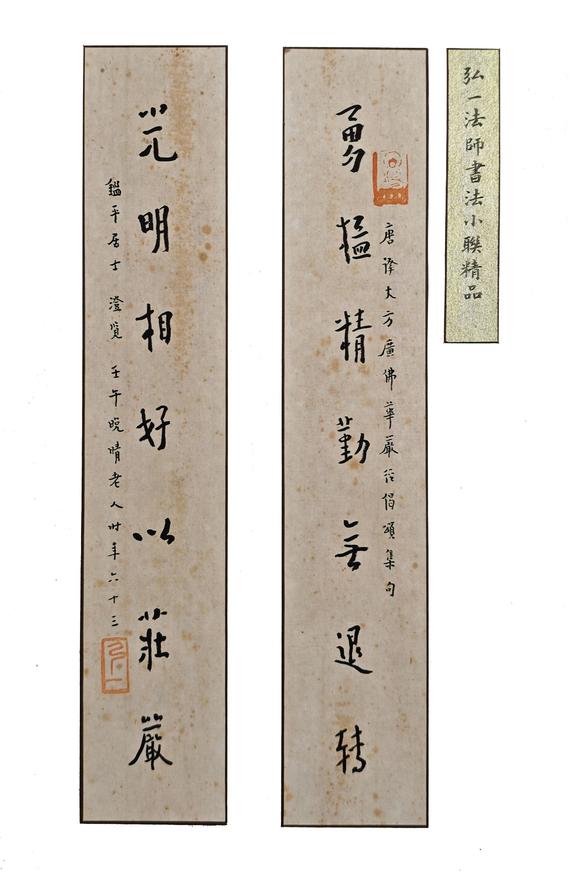 弘一法師書法小聯精品
唐譯大方廣佛華嚴經偈頌集句
勇猛精勤無退轉
光明相好以莊嚴
鑑平居士 澄覽 壬午晚晴老人時年六十三
弘一